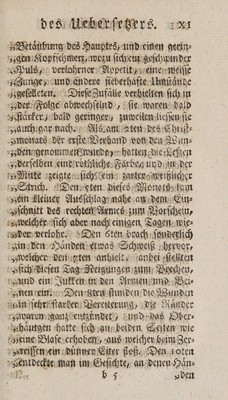 des Uebersetzers. XI
„Betäubung des Hauptes, und einen gerin-
„gen Kopfschmerz, wozu sich ein geschwinder
„Puls, verlohrner Appetit, eine weisse
„Zunge, und andere fieberhafte Umstände
„geselleten. Diese Zufälle verhielten sich in
„der Folge abwechselnd, sie waren bald
„stärker, bald geringer, zuweilen liessen sie
„auch gar nach. Als am 2ten des Christ-
„monats der erste Verband von den Wun-
„den genommen wurde, hatten die Lefzen
„derselben eine röthliche Farbe, und in der
„Mitte zeigte sich ein zarter weißlicher
„Strich. Den 5ten dieses Monats kam
„ein kleiner Ausschlag nahe an dem Ein-
„schnitt des rechten Armes zum Vorschein,
„welcher sich aber nach einigen Tagen wie-
„der verlohr. Den 6ten brach sonderlich
„in den Händen etwas Schweiß hervor,
„welcher den 7ten anhielt, anbey stellten
„sich diesen Tag Neigungen zum Brechen,
„und ein Jucken in den Armen und Bei-
„nen ein. Den 8ten stunden die Wunden
„in sehr starker Vereiterung, die Ränder
„waren ganz entzündet, und das Ober-
„häutgen hatte sich an beiden Seiten wie
„eine Blase erhoben, aus welcher beym Zer-
„reissen ein dünner Eiter floß. Den 10ten
„entdeckte man im Gesichte, an denen Hän-
b 5 „den